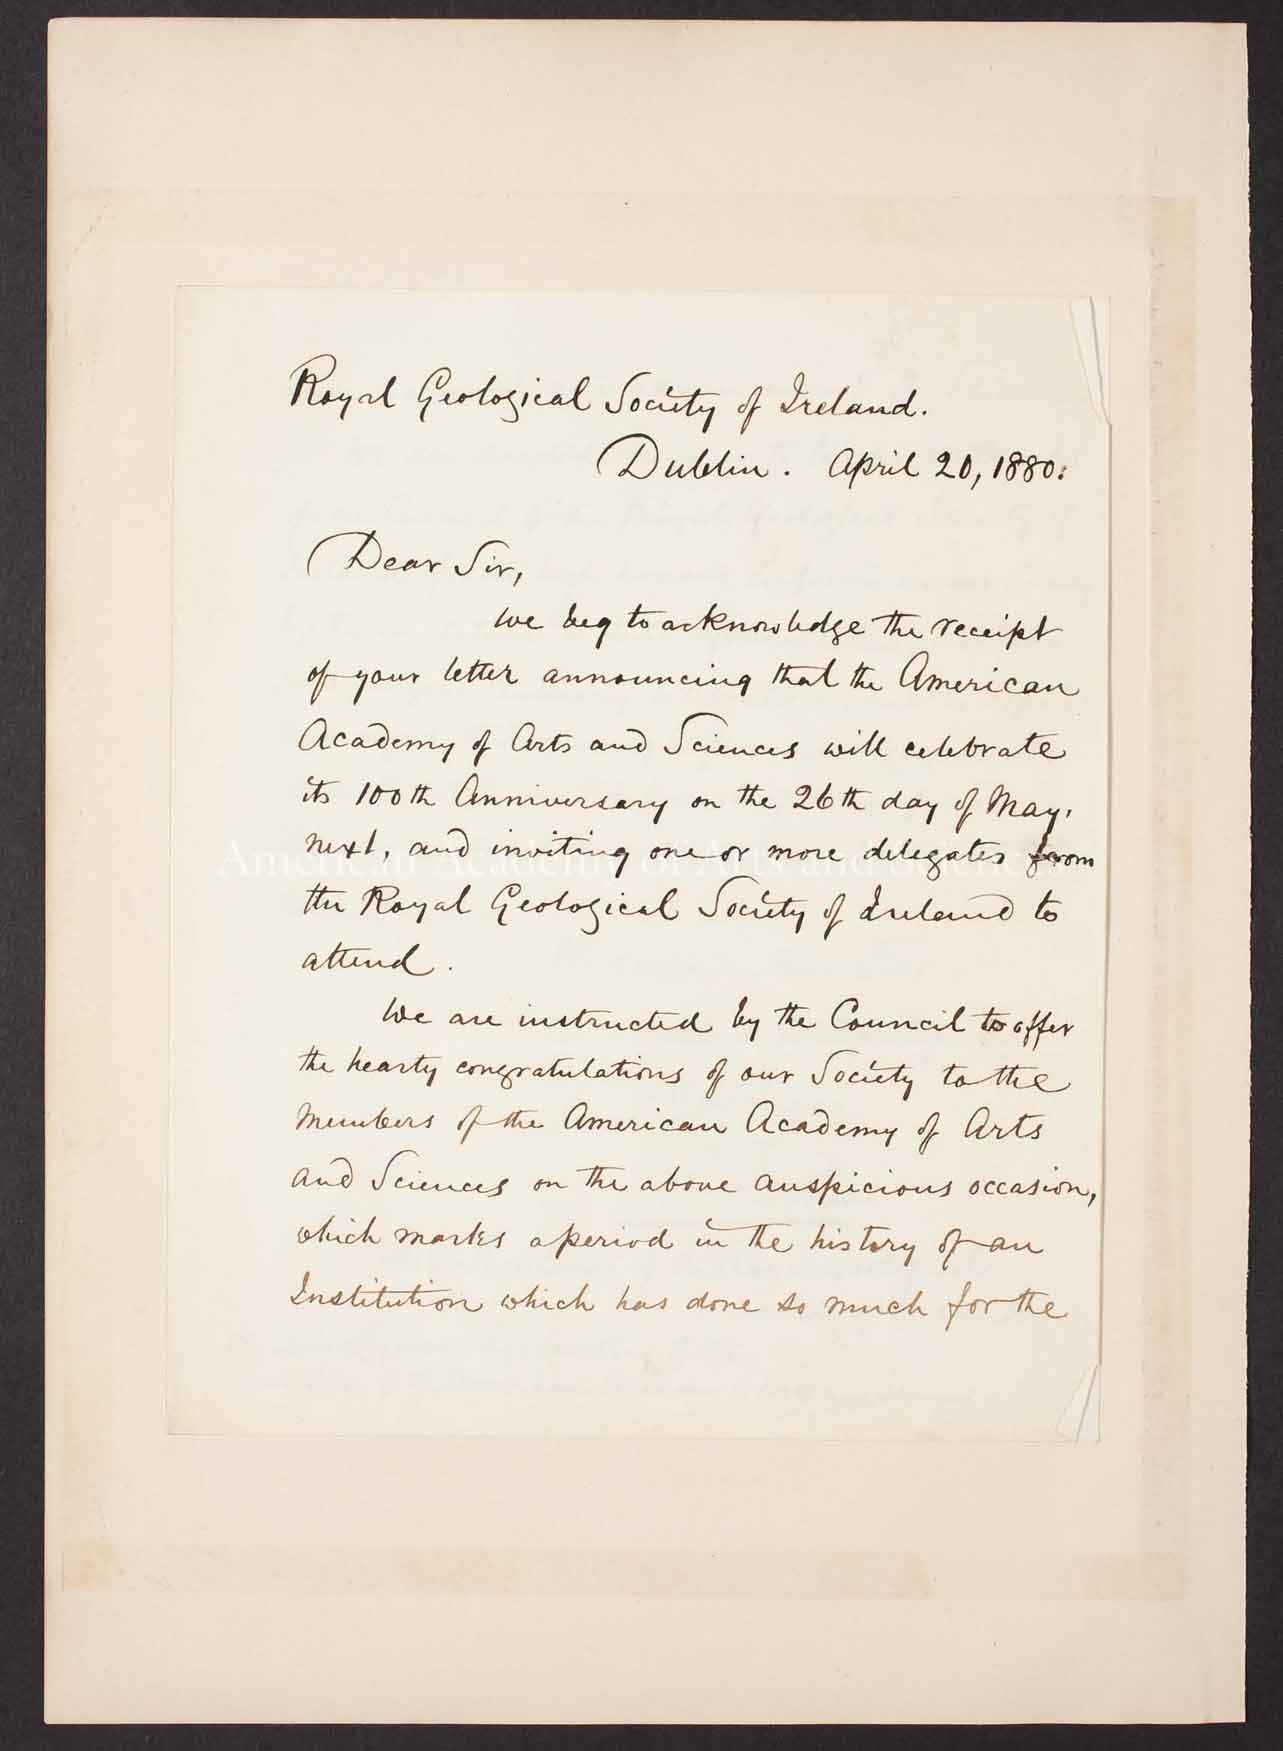 Royal Geological Society of Ireland.
Dublin. April 20, 1880.
Dear Sir,
We beg to acknowledge the receipt
of your letter announcing that the American
Academy of Arts and Sciences will celebrate
its 100th Anniversary on the 26th day of May,
next, and inviting one or more delegates from
American Academy of Arts and Sciences
the Royal Geological Society of Ireland to
attend.
We are instructed by the Council to offer
the hearty congratulations of our Society to the
Members of the American Academy of Arts
and Sciences on the above auspicious occasion,
which marks a period in the history of an
Institution which has done so much for the